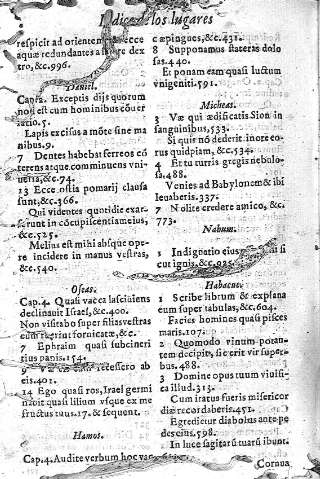 Indice de los lugares
respicit ad orientem ecce
aquæ redundantes a dex
tro,&c.996.
Daniel.
Cap.2. Exceptis dijs quorum
non est cum hominibus cōuer
satio.5.
Lapis excisus a mōte sine ma
nibus.9.
7 Dentes habebat ferreos cō
terens atque comminuens vni-
uersa,&c.74.
13 Ecce ostia pomarij clausa
sunt,&c.366.
Qui videntes quotidie exar-
serunt in cōcupiscentiam eius,
&c.525.
Melius est mihi absque ope-
re incidere in manus vestras,
&c.540.
Oseas.
Cap.4. Quasi vacca lasciuiens
declinauit Israel,&c.400.
Non visitabo super filias vestras
cum fuerint fornicatæ,&c.
7 Ephraim quasi subcineri
tius panis.154.
9 recessero ab
eis.401.
14 Ego quasi ros, Israel germi
nabit quasi lilium vsque ex me
fructus tuus.17. & sequent.
Hamos.
Cap.4. Audite verbum hoc vac
cæ pingues,&c.431.
8 Supponam stateras dolo
sas.440.
Et ponam eam quasi luctum
vnigeniti.591.
Micheas.
3 Væ qui ædificatis Sion in
sanguinibus,533.
Si quis nō dederit in ore eo-
rum quidpiam,&c.534.
4 Et tu turris gregis nebulo-
sa.488.
Venies ad Babylonem & ibi
leuaberis.337.
7 Nolite credere amico,&c.
773.
Nahum.
1 Indignatio eius si
cut ignis,&c.925.
Habacuc.
1 Scribe librum & explana
eum super tabulas,&c.604.
Facies homines quasi pisces
maris.107.
2 Quomodo vinum potan-
tem decipit, sic erit vir super-
bus.488.
3 Domine opus tuum viuifi-
ca illud.313.
Cum iratus fueris misericor
diæ recordaberis.451.
Egredietur diabolus ante pe
des eius.598.
In luce sagittarū tuarū ibunt.
Cornua